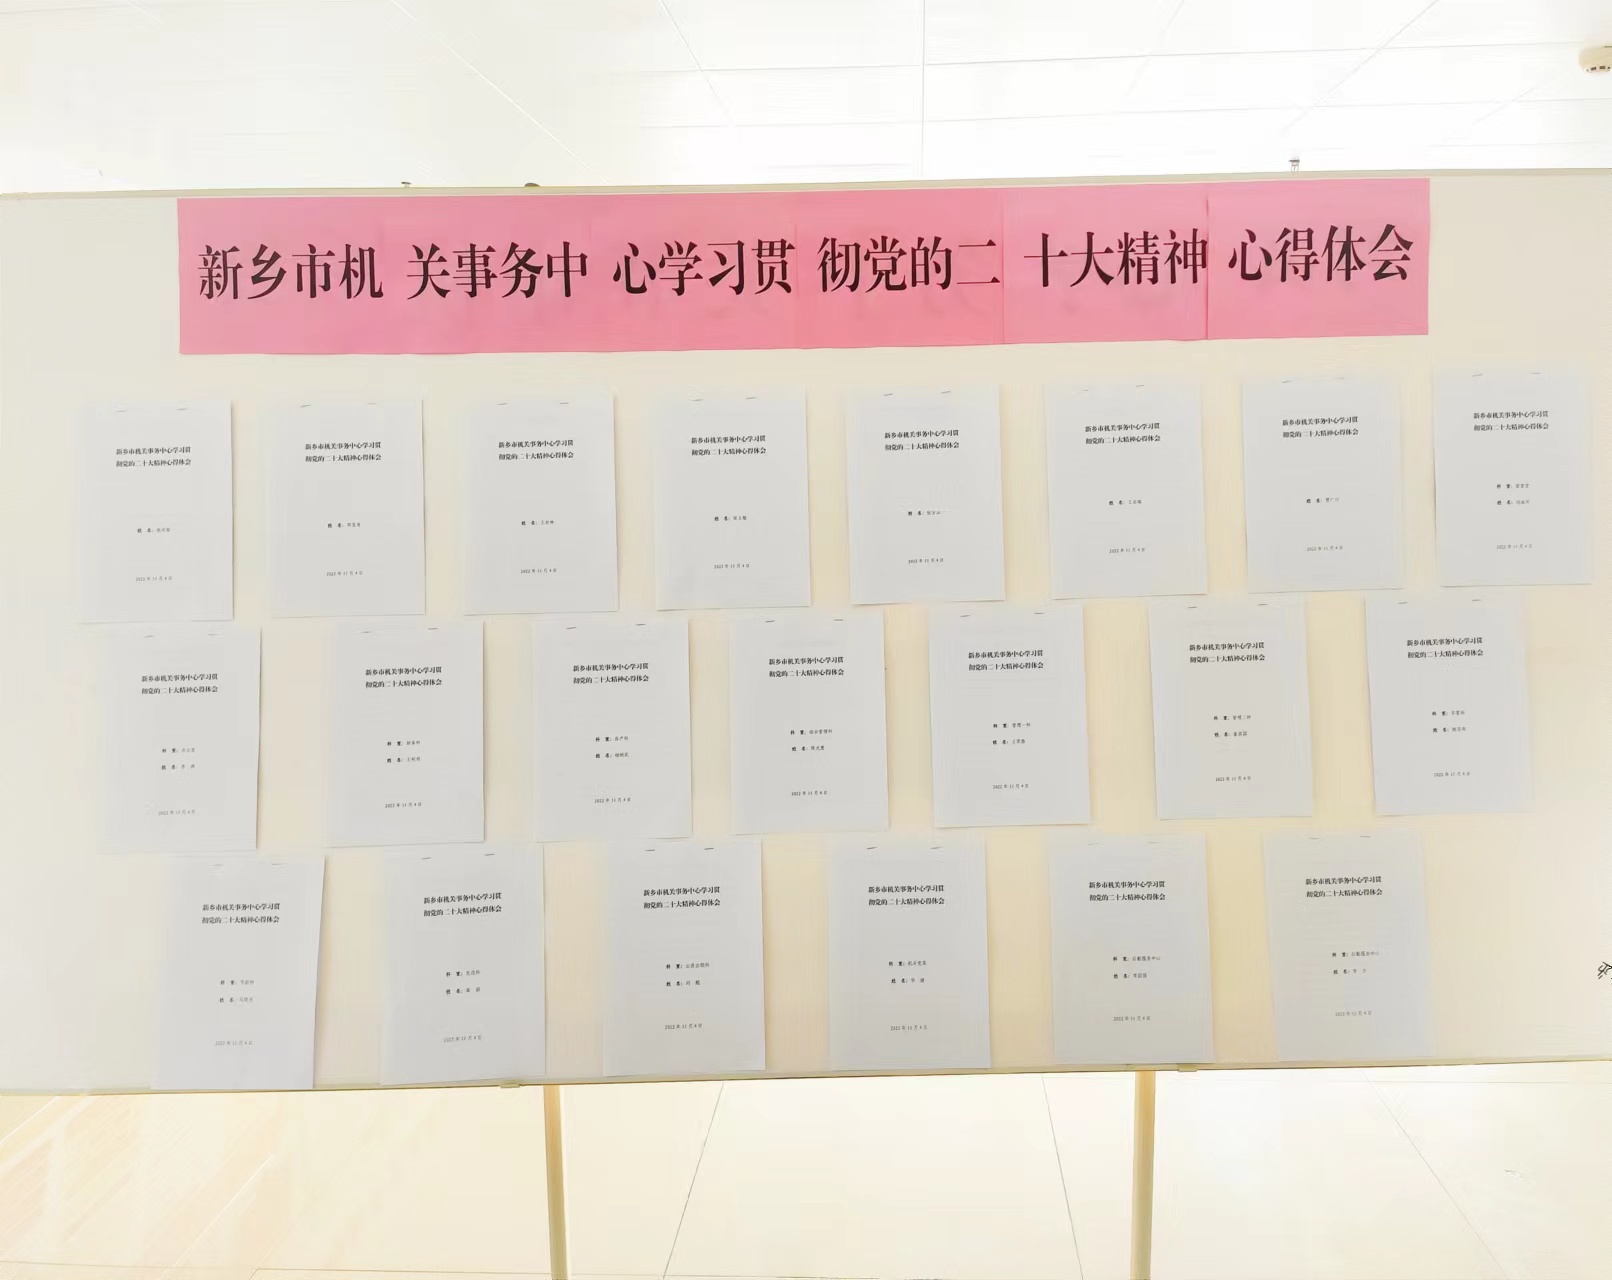 新乡市机关事务中心学习贯彻党的二十大精神心得体会
新乡市机关事务中心学习贯
彻党的二十大精神心得体会
姓 名：
2022 年 11 月 4 日
新乡市机关事务中心学习贯
彻党的二十大精神心得体会
姓 名：
2022 年 11 月 4 日
新乡市机关事务中心学习贯
彻党的二十大精神心得体会
姓 名：
2022 年 11 月 4 日
新乡市机关事务中心学习贯
彻党的二十大精神心得体会
姓 名：
2022 年 11 月 4 日
新乡市机关事务中心学习贯
彻党的二十大精神心得体会
姓 名：
2022 年 11 月 4 日
新乡市机关事务中心学习贯
彻党的二十大精神心得体会
姓 名：
2022 年 11 月 4 日
新乡市机关事务中心学习贯
彻党的二十大精神心得体会
姓 名：
2022 年 11 月 4 日
新乡市机关事务中心学习贯
彻党的二十大精神心得体会
科 室：
姓 名：
2022 年 11 月 4 日
新乡市机关事务中心学习贯
彻党的二十大精神心得体会
科 室：办公室
姓 名：
2022 年 11 月 4 日
新乡市机关事务中心学习贯
彻党的二十大精神心得体会
科 室：财务科
姓 名：
2022 年 11 月 4 日
新乡市机关事务中心学习贯
彻党的二十大精神心得体会
科 室：房产科
姓 名：
2022 年 11 月 4 日
新乡市机关事务中心学习贯
彻党的二十大精神心得体会
科 室：综合管理科
姓 名：
2022 年 11 月 4 日
新乡市机关事务中心学习贯
彻党的二十大精神心得体会
科 室：管理一科
姓 名：
2022 年 11 月 4 日
新乡市机关事务中心学习贯
彻党的二十大精神心得体会
科 室：管理二科
姓 名：
2022 年 11 月 4 日
新乡市机关事务中心学习贯
彻党的二十大精神心得体会
科 室：
姓 名：
2022 年 11 月 4 日
新乡市机关事务中心学习贯
彻党的二十大精神心得体会
科 室：节能科
姓 名：
2022 年 11 月 4 日
新乡市机关事务中心学习贯
彻党的二十大精神心得体会
科 室：
姓 名：
2022 年 11 月 4 日
新乡市机关事务中心学习贯
彻党的二十大精神心得体会
科 室：
姓 名：
2022 年 11 月 4 日
新乡市机关事务中心学习贯
彻党的二十大精神心得体会
科 室：机关党委
姓 名：
2022 年 11 月 4 日
新乡市机关事务中心学习贯
彻党的二十大精神心得体会
科 室：后勤服务中心
姓 名：
2022 年 11 月 4 日
新乡市机关事务中心学习贯
彻党的二十大精神心得体会
科 室：后勤服务中心
姓 名：
2022 年 11 月 4 日